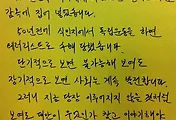 감옥에 집어 넣었습니다.
50년전에 식민지에서 독립운동을 하면
테러리스트로 수배 당했습니다.
단기적으로 보면 불가능해 보여도
장기적으로 보면 사회는 계속 발전합니다.
그러니 지금 당장 이루어지지 않을 것처럼
보여도 대안이 무엇인가 찾고 이야기해야